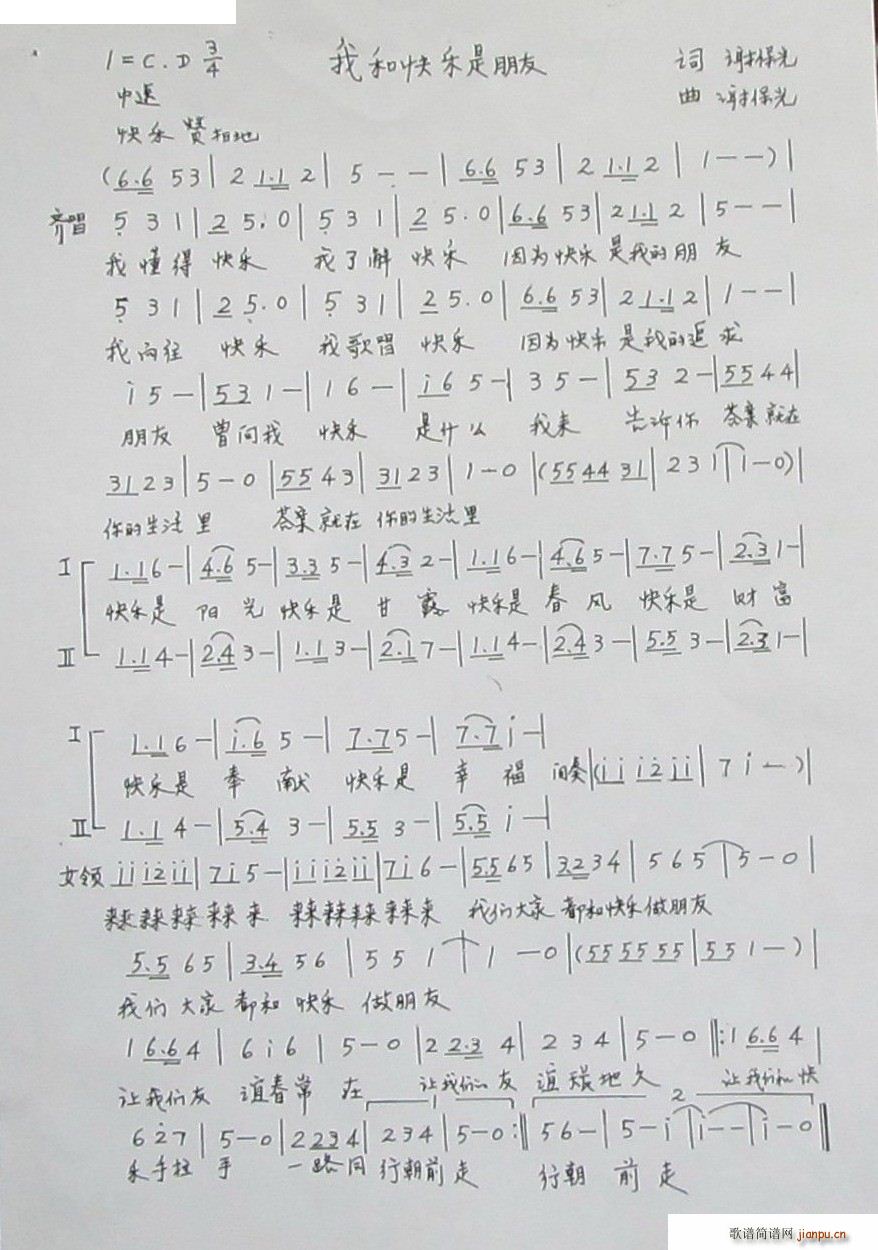 1=C.D 3/4 我和快乐是朋友 词 谢保光
中速 曲 谢保光
快乐 赞相地
(6.6 5 3 | 2 1.1 2 | 5 - - | 6.6 5 3 | 2 1.1 2 | 1 - - ) |
齐唱 5 3 1 | 2 5. 0 | 5 3 1 | 2 5. 0 | 6.6 5 3 | 2 1.1 2 | 5 - - |
我懂得 快乐 我了解 快乐 因为快乐是我的朋友
5 3 1 | 2 5. 0 | 5 3 1 | 2 5. 0 | 6.6 5 3 | 2 1.1 2 | 1 - - |
我向往 快乐 我歌唱 快乐 因为快乐是我的追求
i 5 - | 5 3 1 - | 1 6 - | i 6 5 - | 3 5 - | 5 3 2 - | 5 5 4 4 |
朋友 曾问我 快乐 是什么 我来 告诉你 答案就在
3 1 2 3 | 5 - 0 | 5 5 4 3 | 3 1 2 3 | 1 - 0 | (5 5 4 4 3 1 | 2 3 1 | 1 - 0) |
你的生活里 答案就在你的生活里
I 1.1 6 - | 4.6 5 - | 3.3 5 - | 4.3 2 - | 1.1 6 - | 4.6 5 - | 7.7 5 - | 2.3 1 - |
快乐是 阳光 快乐是 甘露 快乐是 春风 快乐是 财富
II 1.1 4 - | 2.4 3 - | 1.1 3 - | 2.1 7 - | 1.1 4 - | 2.4 3 - | 5.5 3 - | 2.3 1 - |
I 1.1 6 - | i.6 5 - | 7.7 5 - | 7.7 i - |
快乐是 奉献 快乐是 幸福 间奏 | (i i i 2 i i | 7 i - ) |
II 1.1 4 - | 5.4 3 - | 5.5 3 - | 5.5 i - |
女领 i i i 2 i i | 7 i 5 - | i i i 2 i i | 7 i 6 - | 5.5 6 5 | 3.2 3 4 | 5 6 5 | 5 - 0 |
来来来来来来来来来 来来来来来来来来来 我们大家都和快乐做朋友
5.5 6 5 | 3.4 5 6 | 5 5 1 | 1 - 0 | (5 5 5 5 5 5 | 5 5 1 - ) |
我们大家都和快乐 做朋友
1 6.6 4 | 6 i 6 | 5 - 0 | 2 2.3 4 | 2 3 4 | 5 - 0 ‖: 1 6.6 4 |
让我们友 谊春常 在 让我们友 谊 地久 2 让我们和快
6 2 7 | 5 - 0 | 2 2 3 4 | 2 3 4 | 5 - 0 :‖ 5 6 - | 5 - i | i - - | i - 0 ‖
乐手拉 手 一路同 行朝前走 行朝 前 走
歌谱简谱网 jianpu.cn